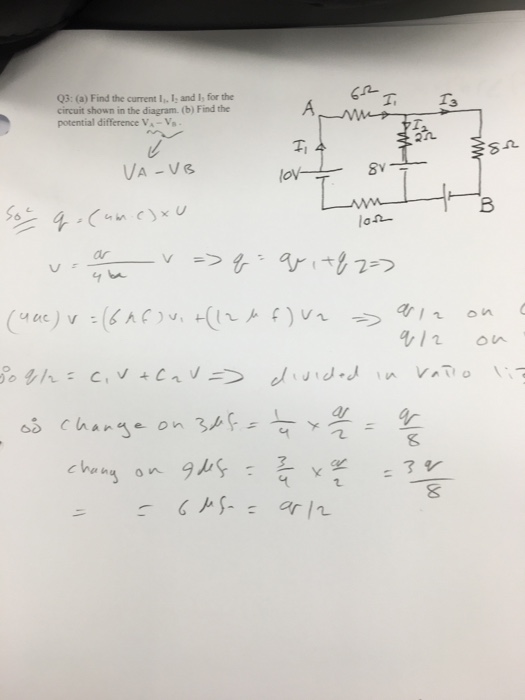 Q3: (a) Find the current I₁, I₂ and I₃ for the
circuit shown in the diagram. (b) Find the
potential difference V_A – V_B.
VA – VB
A
6Ω
I₁
I₃
I₁
I₂
2Ω
8Ω
10V
8V
10Ω
B
q = (4m·c) × v
v = v => q = q₁ + q 2 =>
v₁ + (12 μ f) v₂ => q/2 on
q/2 on
q/2 = C₁V + C₂V => divided in ratio
change on 3μf = 1/4 × q/2 = q/8
chang on 9μf = 3/4 × q/2 = 3q/8
= = 6 μf = q/2